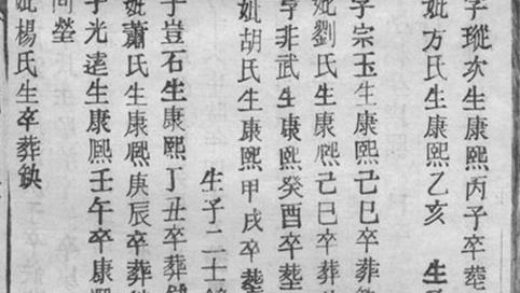 字瑽次生康熙丙子卒塟
妣方氏生康熙乙亥 生
字宗玉生康熙己巳卒葬
妣劉氏生康熙己巳卒葬
字非武生康熙癸酉卒塟
妣胡氏生康熙甲戌卒塟
生子二士
字豈石生康熙丁丑卒葬
妣蕭氏生康熙庚辰卒葬
字光遠生康熙壬午卒康熙
同塋
妣楊氏生卒葬缺